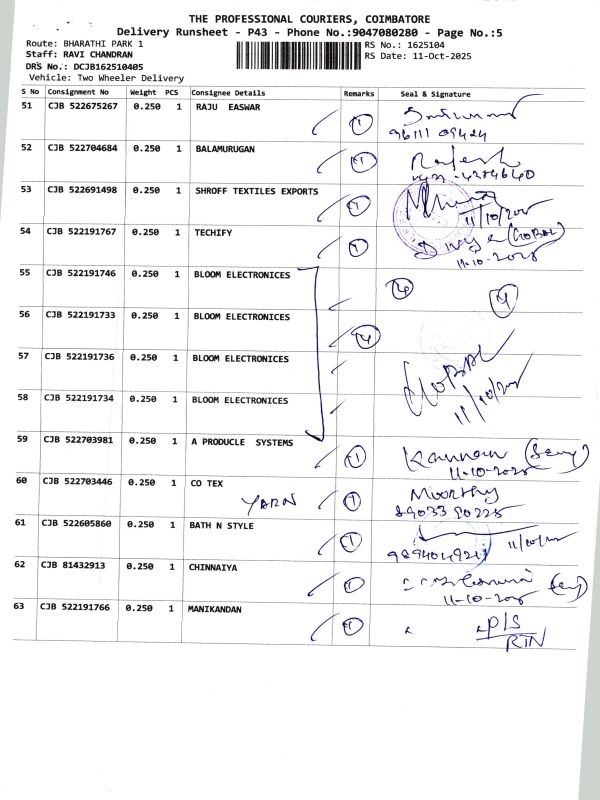 THE PROFESSIONAL COURIERS, COIMBATORE
Delivery Runsheet - P43 - Phone No.:9047080280 - Page No.:5
Route: BHARATHI PARK 1
RS No.: 1625104
Staff: RAVI CHANDRAN
RS Date: 11-Oct-2025
DRS No.: DCJB162510405
Vehicle: Two Wheeler Delivery
S No Consignment No Weight PCS Consignee Details Remarks Seal & Signature
51 CJB 522675267 0.250 1 RAJU EASWAR 1
96111 09424
52 CJB 522704684 0.250 1 BALAMURUGAN 1 Rajesh
53 CJB 522691498 0.250 1 SHROFF TEXTILES EXPORTS 1
11/10/2025
54 CJB 522191767 0.250 1 TECHIFY 1 Divya (GOBAL)
11-10-2025
55 CJB 522191746 0.250 1 BLOOM ELECTRONICES 4 4
56 CJB 522191733 0.250 1 BLOOM ELECTRONICES 4
57 CJB 522191736 0.250 1 BLOOM ELECTRONICES
GOBAL
58 CJB 522191734 0.250 1 BLOOM ELECTRONICES
11/10/2025
59 CJB 522703981 0.250 1 A PRODUCLE SYSTEMS 1 Kannan
11-10-2025
60 CJB 522703446 0.250 1 CO TEX 1 Moorthy
YARN 89033 90225
61 CJB 522605860 0.250 1 BATH N STYLE 1
11/10/2025
62 CJB 81432913 0.250 1 CHINNAIYA 1
11-10-2025
63 CJB 522191766 0.250 1 MANIKANDAN 1 P/S
RTN